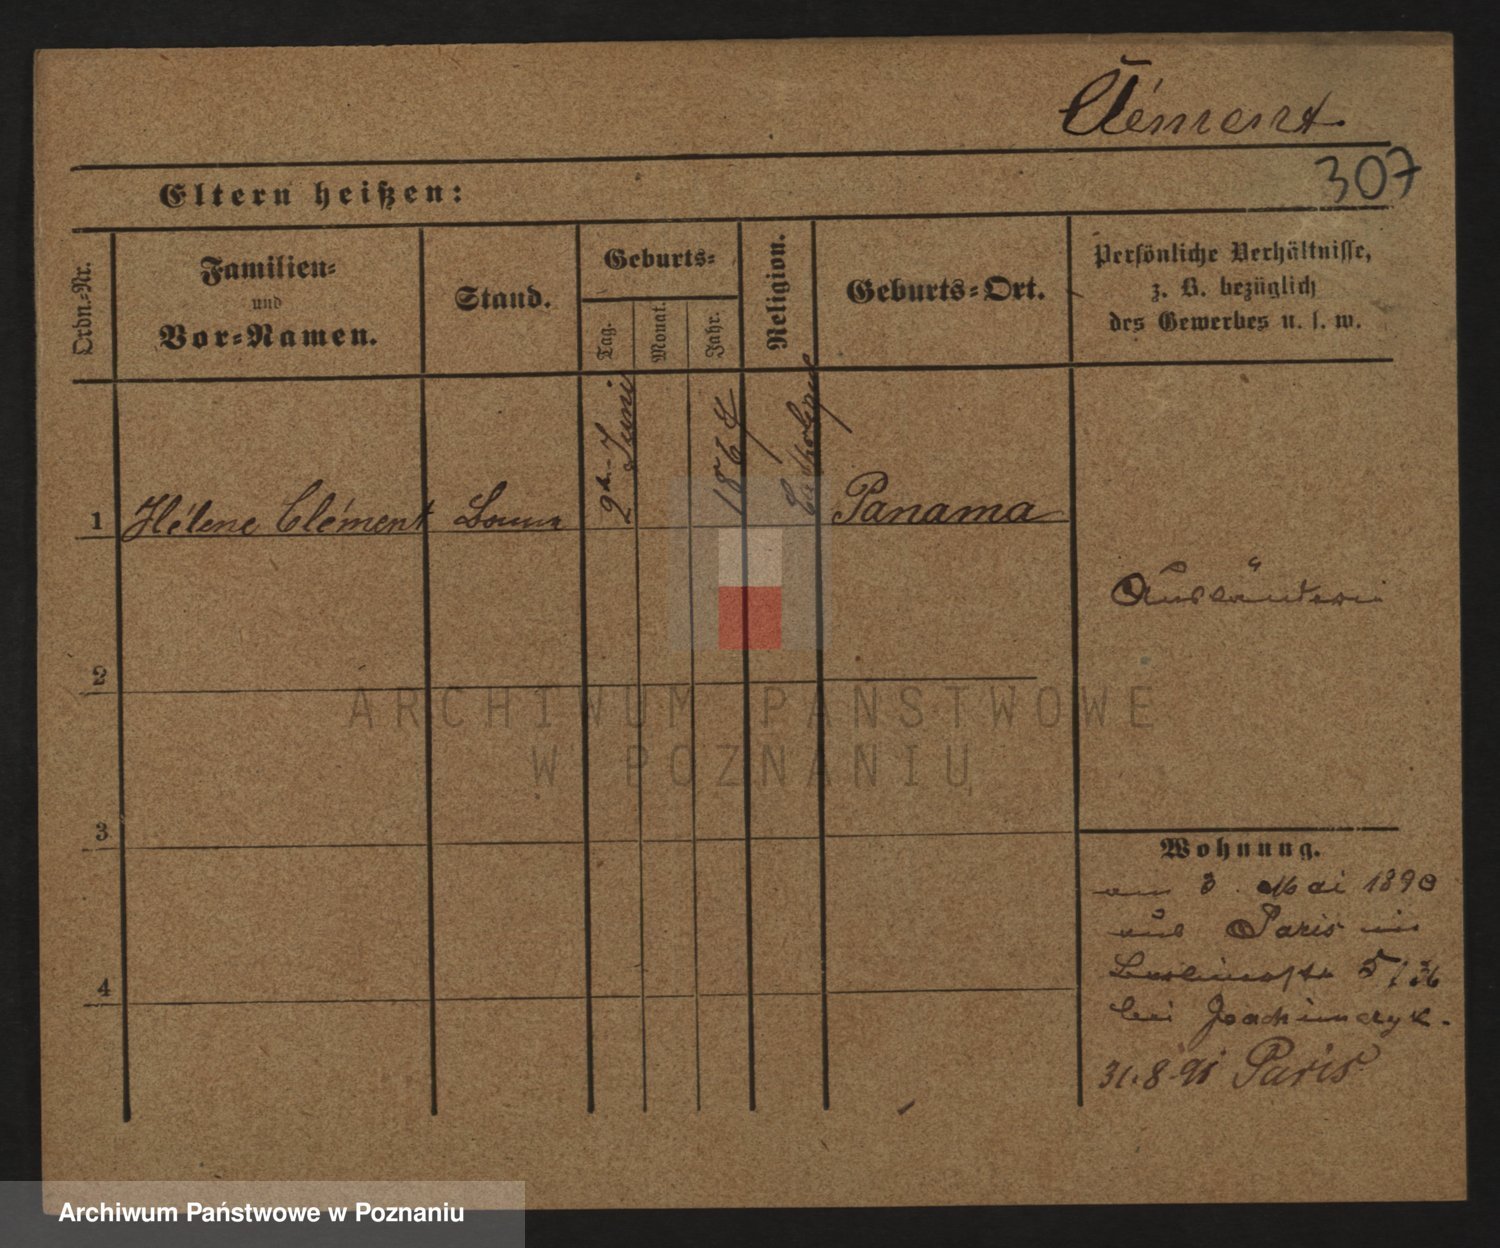 Clément
307
Eltern heißen:
Ordn.-Nr.
Familien-
und
Vor-Namen.
Stand.
Geburts-
Tag.
Monat.
Jahr.
Religion.
Geburts-Ort.
Persönliche Verhältnisse,
z. B. bezüglich
des Gewerbes u. s. w.
1 Hélène Clément
Juni
1864
Catholique
Panama
Ausländerin
2
3
4
Wohnung.
am 3. Mai 1890
aus Paris in
Berlinerstr 5
bei Joachimczyk.
31.8.91 Paris
ARCHIWUM PAŃSTWOWE
W POZNANIU
Archiwum Państwowe w Poznaniu